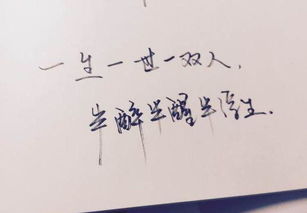 一生一世一双人,
半醉半醒半浮生.